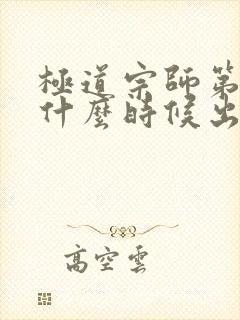 極道宗師第
什麼時候出
高空雲